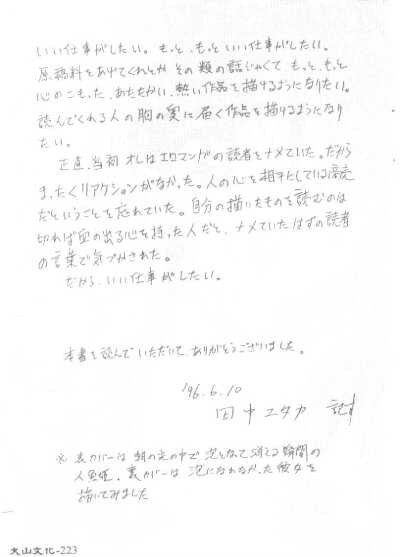 いい仕事がしたい。もっと、もっといい仕事がしたい。
原稿料をあげてくれとか その類の話じゃなくて もっと、もっと
心のこもった、あたたかい、熱い作品を描けるようになりたい。
読んでくれる人の胸の奥に届く作品を描けるようになり
たい。
正直、当初 オレはエロマンガの読者をナメていた。だから
まったくリアクションがなかった。人の心を相手にしている商売
だということを忘れていた。自分の描いたものを読むのは
切れば血の出る心を持った人だと、ナメていたはずの読者
の言葉で気づかされた。
だから、いい仕事がしたい。
本書を読んでいただいて、ありがとうございました。
'96.6.10
田中ユタカ 記す
※ 表カバーは 朝の光の中で 泡となって消える瞬間の
人魚姫、裏カバーは 泡になれなかった彼女を
描いてみました
大山文化-223